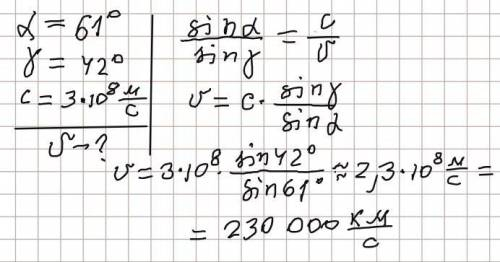 α = 61°
γ = 42°
c = 3·10⁸ м/с
v – ?
sinα/sinγ = c/v
v = c · sinγ/sinα
v = 3·10⁸ · sin42°/sin61° ≈ 2,3·10⁸ м/с =
= 230 000 км/с